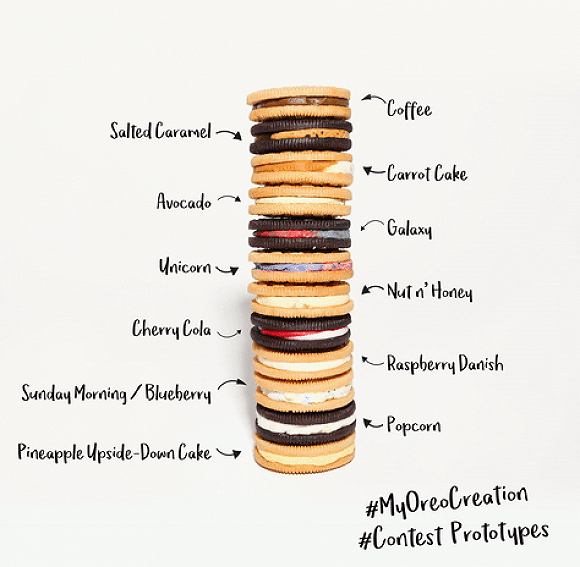 Coffee
Salted Caramel
Carrot Cake
Avocado
Galaxy
Unicorn
Nut n' Honey
Cherry Cola
Raspberry Danish
Sunday Morning / Blueberry
Popcorn
Pineapple Upside-Down Cake
#MyOreoCreation
#Contest Prototypes